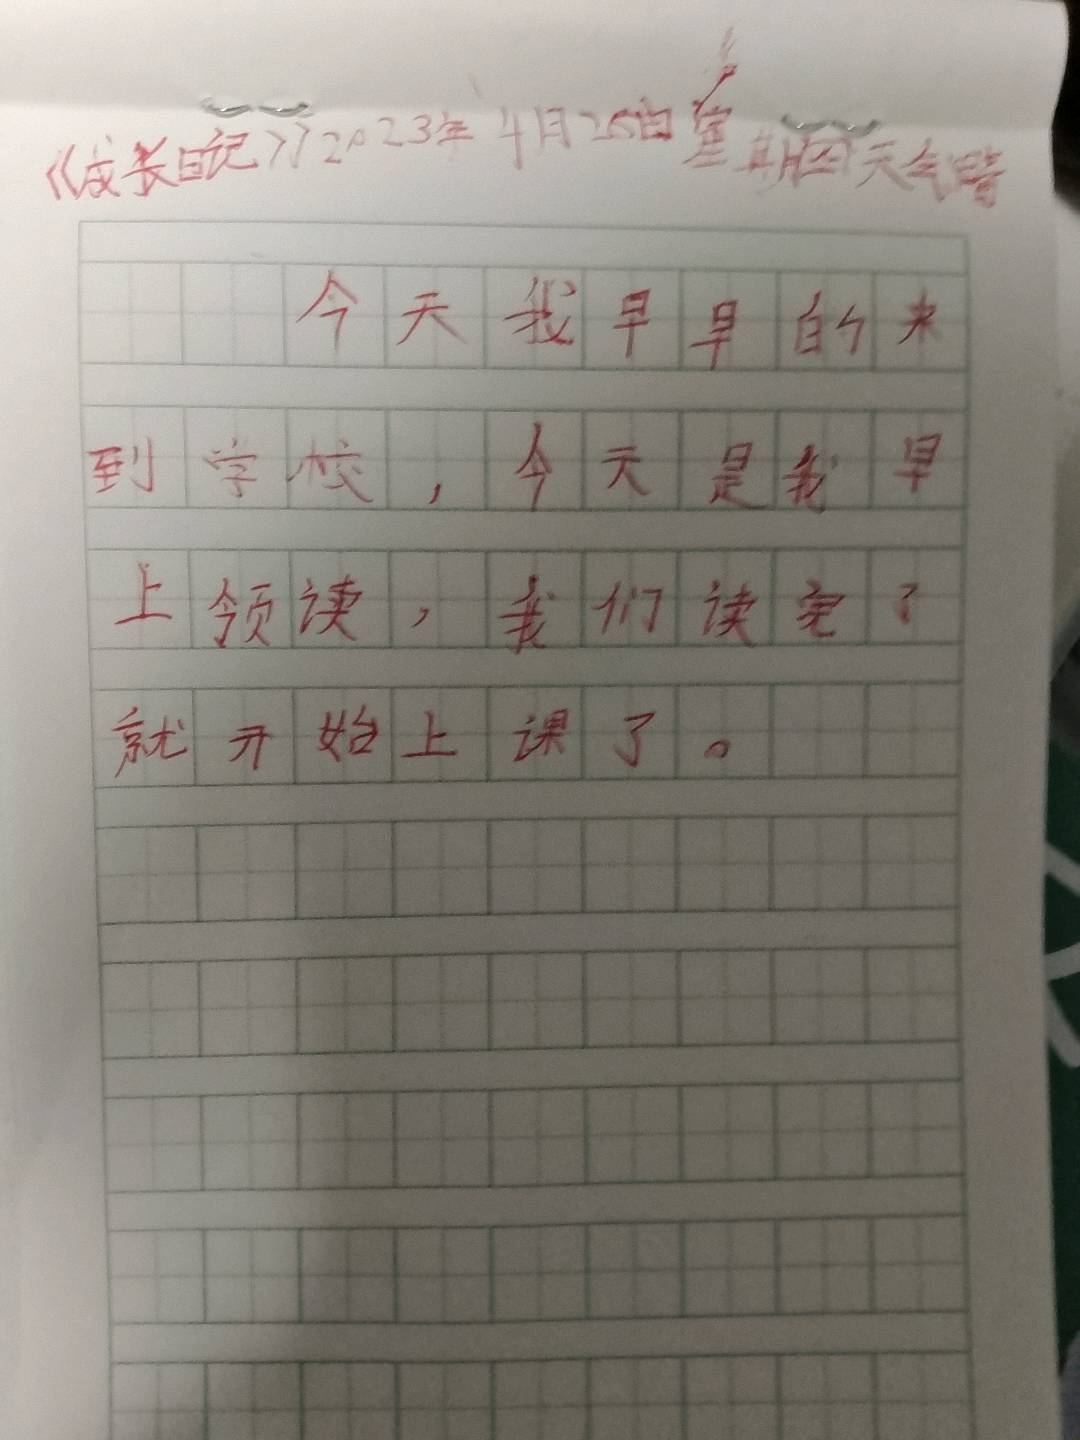 《成长日记》2023年4月26日星期四天气晴
今天我早早的来
到学校，今天是我早
上领读，我们读完了
就开始上课了。